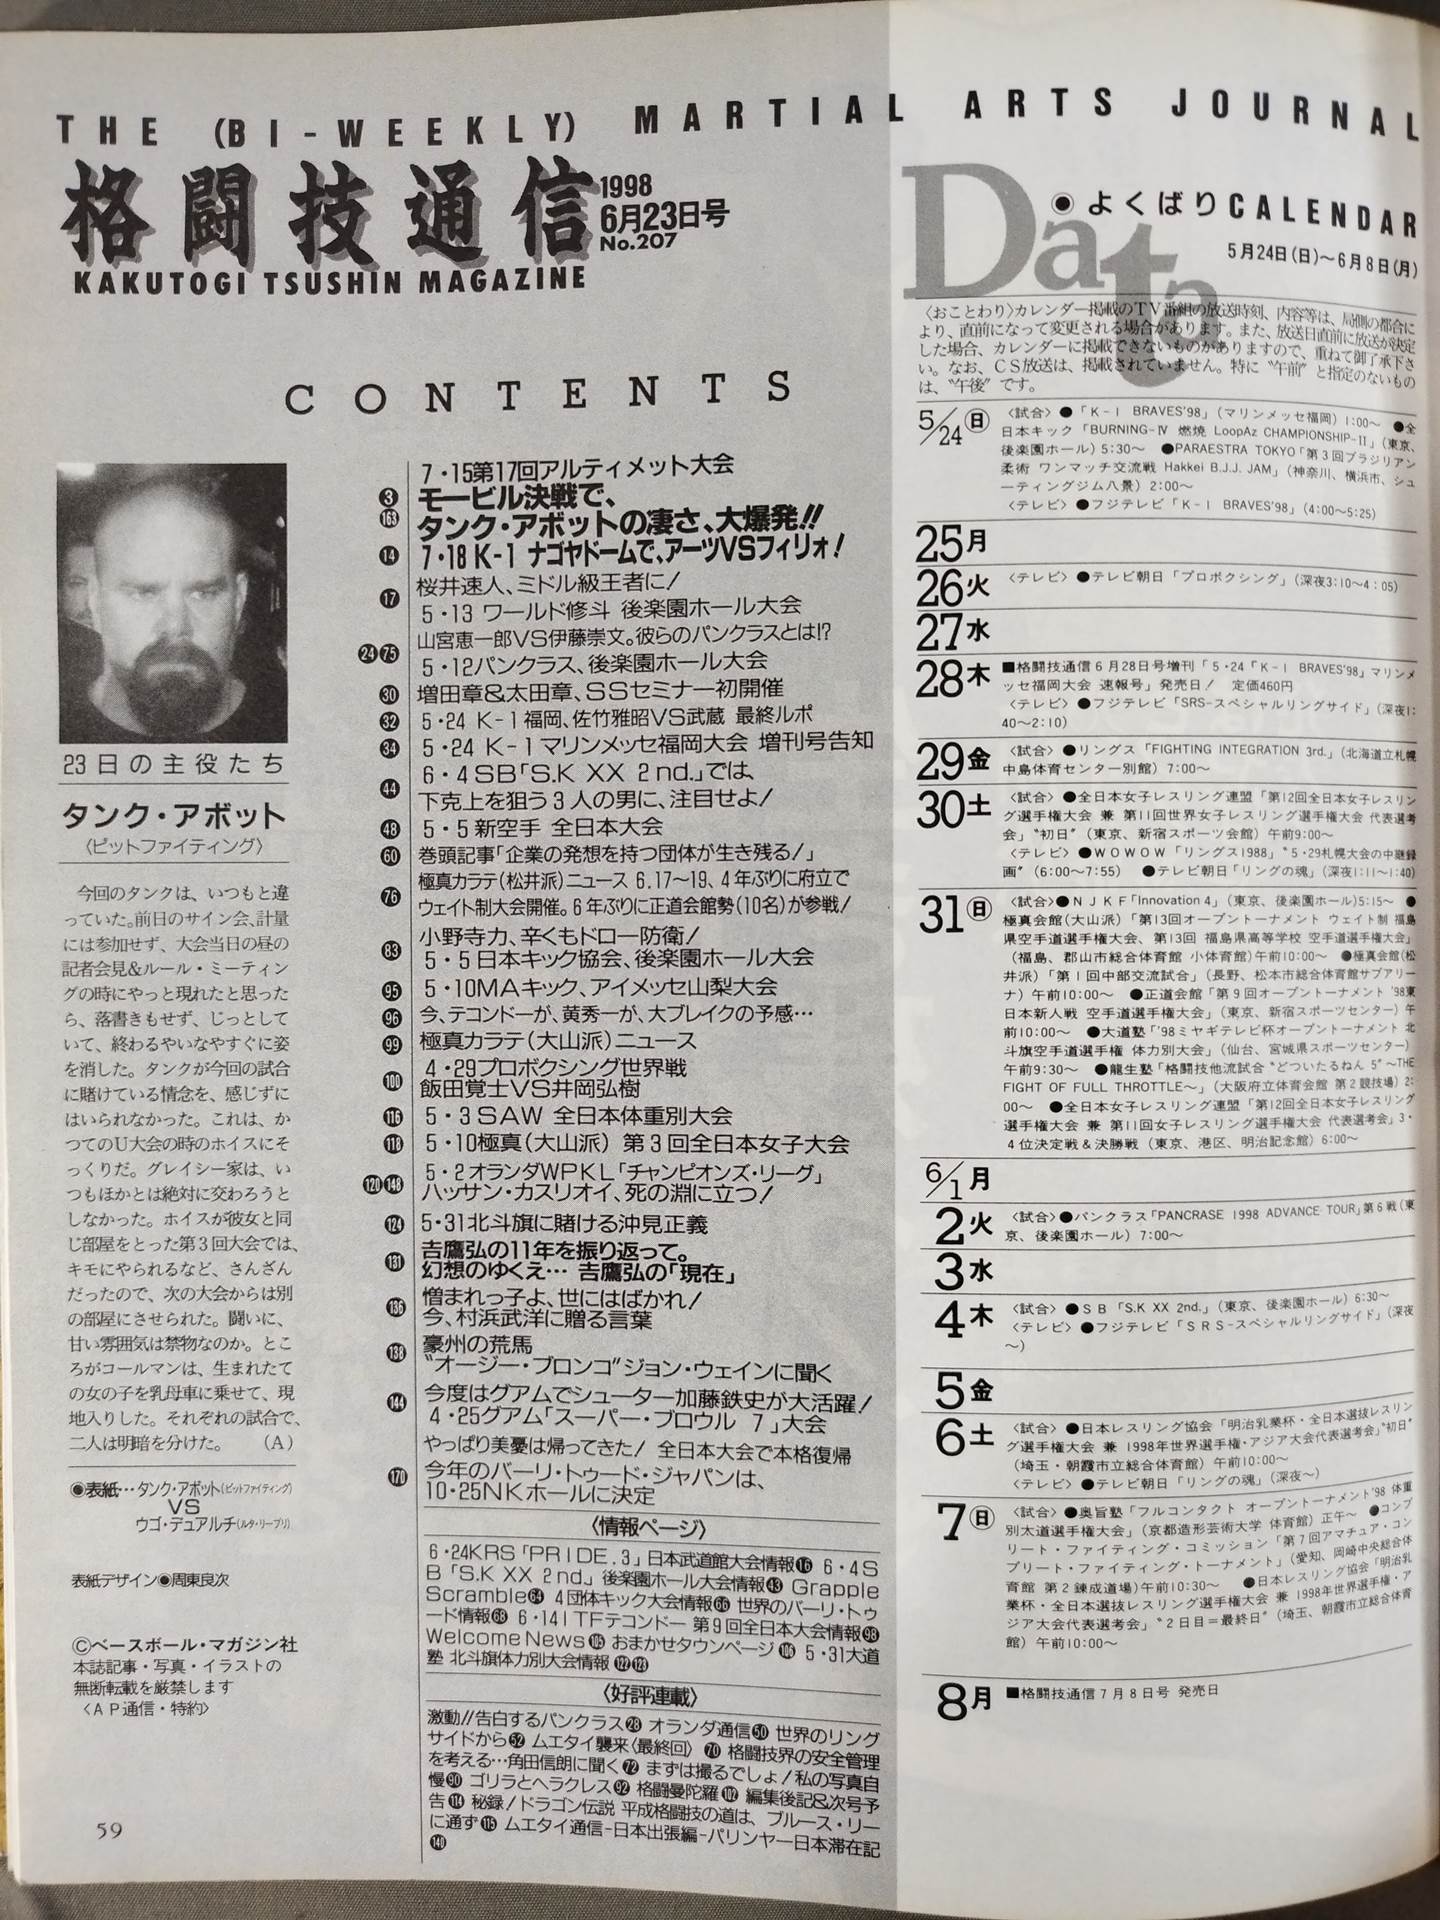 THE (BI-WEEKLY) MARTIAL ARTS JOURNAL
格闘技通信
1998
6月23日号
No.207
KAKUTOGI TSUSHIN MAGAZINE
CONTENTS
23日の主役たち
タンク・アボット
〈ピットファイティング〉
今回のタンクは、いつもと違
っていた。前日のサイン会、計量
には参加せず、大会当日の昼の
記者会見&ルール・ミーティン
グの時にやっと現れたと思った
ら、落書きもせず、じっとして
いて、終わるやいなやすぐに姿
を消した。タンクが今回の試合
に賭けている情念を、感じずに
はいられなかった。これは、か
つてのU大会の時のホイスにそ
っくりだ。グレイシー家は、い
つもほかとは絶対に交わろうと
しなかった。ホイスが彼女と同
じ部屋をとった第3回大会では、
キモにやられるなど、さんざん
だったので、次の大会からは別
の部屋にさせられた。闘いに、
甘い雰囲気は禁物なのか。とこ
ろがコールマンは、生まれたて
の女の子を乳母車に乗せて、現
地入りした。それぞれの試合で、
二人は明暗を分けた。 (A)
◉表紙…タンク・アボット(ピットファイティング)
VS
ウゴ・デュアルチ(ルタ・リーブリ)
表紙デザイン◉周東良次
©ベースボール・マガジン社
本誌記事・写真・イラストの
無断転載を厳禁します
〈AP通信・特約〉
59
7・15第17回アルティメット大会
3 モービル決戦で、
163 タンク・アボットの凄さ、大爆発!!
14 7・18 K-1 ナゴヤドームで、アーツVSフィリォ!
17 桜井速人、ミドル級王者に!
5・13 ワールド修斗 後楽園ホール大会
山宮恵一郎VS伊藤崇文。彼らのパンクラスとは!?
24 75 5・12パンクラス、後楽園ホール大会
30 増田章&太田章、SSセミナー初開催
32 5・24 K-1福岡、佐竹雅昭VS武蔵 最終ルポ
34 5・24 K-1マリンメッセ福岡大会 増刊号告知
44 6・4SB「S.K XX 2nd.」では、
下克上を狙う3人の男に、注目せよ!
48 5・5新空手 全日本大会
60 巻頭記事「企業の発想を持つ団体が生き残る!」
76 極真カラテ(松井派)ニュース 6.17〜19、4年ぶりに府立で
ウェイト制大会開催。6年ぶりに正道会館勢(10名)が参戦!
83 小野寺力、辛くもドロー防衛!
5・5日本キック協会、後楽園ホール大会
95 5・10MAキック、アイメッセ山梨大会
96 今、テコンドーが、黄秀一が、大ブレイクの予感…
99 極真カラテ(大山派)ニュース
100 4・29プロボクシング世界戦
飯田覚士VS井岡弘樹
116 5・3SAW 全日本体重別大会
118 5・10極真(大山派) 第3回全日本女子大会
120 148 5・2オランダWPKL「チャンピオンズ・リーグ」
ハッサン・カスリオイ、死の淵に立つ!
124 5・31北斗旗に賭ける沖見正義
131 吉鷹弘の11年を振り返って。
幻想のゆくえ… 吉鷹弘の「現在」
136 憎まれっ子よ、世にはばかれ!
今、村浜武洋に贈る言葉
138 豪州の荒馬
“オージー・ブロンコ”ジョン・ウェインに聞く
144 今度はグアムでシューター加藤鉄史が大活躍!
4・25グアム「スーパー・ブロウル 7」大会
やっぱり美憂は帰ってきた! 全日本大会で本格復帰
170 今年のバーリ・トゥード・ジャパンは、
10・25NKホールに決定
〈情報ページ〉
6・24KRS「PRIDE.3」日本武道館大会情報16 6・4S
B「S.K XX 2nd」後楽園ホール大会情報43 Grapple
Scramble64 4団体キック大会情報66 世界のバーリ・トゥ
ード情報68 6・14ITFテコンドー 第9回全日本大会情報98
Welcome News105 おまかせタウンページ106 5・31大道
塾 北斗旗体力別大会情報122 123
〈好評連載〉
激動!!告白するパンクラス28 オランダ通信50 世界のリング
サイドから52 ムエタイ襲来〈最終回〉70 格闘技界の安全管理
を考える…角田信朗に聞く72 まずは撮るでしょ!私の写真自
慢90 ゴリラとヘラクレス92 格闘曼陀羅102 編集後記&次号予
告114 秘録!ドラゴン伝説 平成格闘技の道は、ブルース・リー
に通ず115 ムエタイ通信-日本出張編-パリンヤー日本滞在記
140
Data
◉よくばりCALENDAR
5月24日(日)〜6月8日(月)
〈おことわり〉カレンダー掲載のTV番組の放送時刻、内容等は、局側の都合に
より、直前になって変更される場合があります。また、放送日直前に放送が決定
した場合、カレンダーに掲載できないものがありますので、重ねて御了承下さ
い。なお、CS放送は、掲載されていません。特に“午前”と指定のないもの
は、“午後”です。
5/24 日 〈試合〉●「K-1 BRAVES'98」(マリンメッセ福岡) 1:00〜 ●全
日本キック「BURNING-Ⅳ 燃焼 LoopAz CHAMPIONSHIP-Ⅱ」(東京、
後楽園ホール) 5:30〜 ●PARAESTRA TOKYO「第3回ブラジリアン
柔術 ワンマッチ交流戦 Hakkei B.J.J. JAM」(神奈川、横浜市、シュ
ーティングジム八景) 2:00〜
〈テレビ〉●フジテレビ「K-1 BRAVES'98」(4:00〜5:25)
25 月
26 火 〈テレビ〉●テレビ朝日「プロボクシング」(深夜3:10〜4:05)
27 水
28 木 ■格闘技通信6月28日号増刊「5・24「K-1 BRAVES'98」マリンメ
ッセ福岡大会 速報号」発売日! 定価460円
〈テレビ〉●フジテレビ「SRS-スペシャルリングサイド」(深夜1:
40〜2:10)
29 金 〈試合〉●リングス「FIGHTING INTEGRATION 3rd.」(北海道立札幌
中島体育センター別館) 7:00〜
30 土 〈試合〉●全日本女子レスリング連盟「第12回全日本女子レスリン
グ選手権大会 兼 第11回世界女子レスリング選手権大会 代表選考
会」“初日”(東京、新宿スポーツ会館) 午前9:00〜
〈テレビ〉●WOWOW「リングス1988」“5・29札幌大会の中継録
画”(6:00〜7:55) ●テレビ朝日「リングの魂」(深夜1:11〜1:40)
31 日 〈試合〉●NJKF「Innovation 4」(東京、後楽園ホール)5:15〜 ●
極真会館(大山派)「第13回オープントーナメント ウェイト制 福島
県空手道選手権大会、第13回 福島県高等学校 空手道選手権大会」
(福島、郡山市総合体育館 小体育館) 午前10:00〜 ●極真会館(松
井派)「第1回中部交流試合」(長野、松本市総合体育館サブアリー
ナ) 午前10:00〜 ●正道会館「第9回オープントーナメント '98東
日本新人戦 空手道選手権大会」(東京、新宿スポーツセンター) 午
前10:00〜 ●大道塾「'98ミヤギテレビ杯オープントーナメント 北
斗旗空手道選手権 体力別大会」(仙台、宮城県スポーツセンター)
午前9:30〜 ●龍生塾「格闘技他流試合“どついたるねん 5”〜THE
FIGHT OF FULL THROTTLE〜」(大阪府立体育会館 第2競技場) 2:
00〜 ●全日本女子レスリング連盟「第12回全日本女子レスリング
選手権大会 兼 第11回女子レスリング選手権大会 代表選考会」3・
4位決定戦&決勝戦 (東京、港区、明治記念館) 6:00〜
6/1 月
2 火 〈試合〉●パンクラス「PANCRASE 1998 ADVANCE TOUR」第6戦(東
京、後楽園ホール) 7:00〜
3 水
4 木 〈試合〉●SB「S.K XX 2nd.」(東京、後楽園ホール) 6:30〜
〈テレビ〉●フジテレビ「SRS-スペシャルリングサイド」(深夜
〜)
5 金
6 土 〈試合〉●日本レスリング協会「明治乳業杯・全日本選抜レスリン
グ選手権大会 兼 1998年世界選手権・アジア大会代表選考会」“初日”
(埼玉・朝霞市立総合体育館) 午前10:00〜
〈テレビ〉●テレビ朝日「リングの魂」(深夜〜)
7 日 〈試合〉●奥旨塾「フルコンタクト オープントーナメント'98 体重
別太道選手権大会」(京都造形芸術大学 体育館) 正午〜 ●コンプ
リート・ファイティング・コミッション「第7回アマチュア・コン
プリート・ファイティング・トーナメント」(愛知、岡崎中央総合体
育館 第2錬成道場)午前10:30〜 ●日本レスリング協会「明治乳
業杯・全日本選抜レスリング選手権大会 兼 1998年世界選手権・ア
ジア大会代表選考会」“2日目=最終日”(埼玉、朝霞市立総合体育
館) 午前10:00〜
8 月 ■格闘技通信7月8日号 発売日